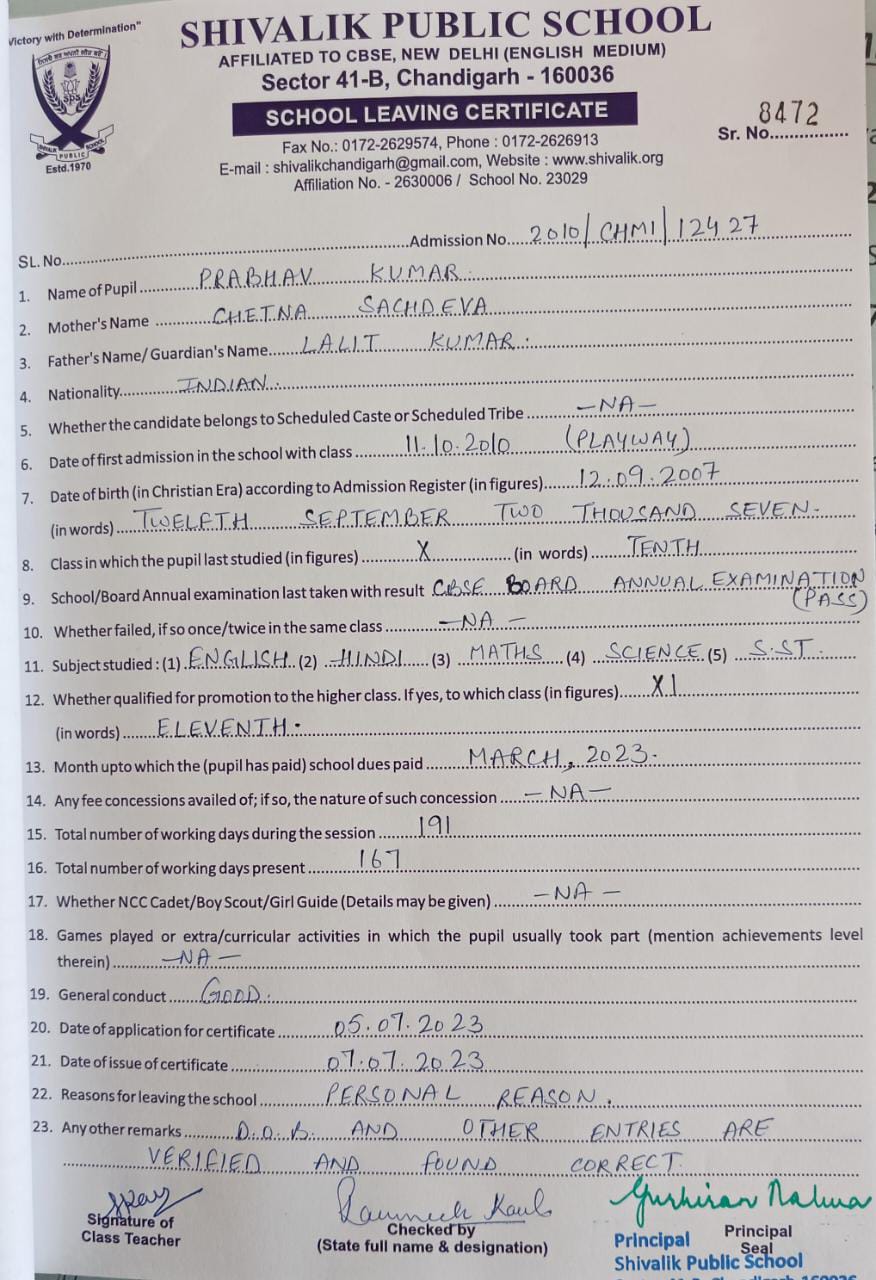 Victory with Determination"
SHIVALIK PUBLIC SCHOOL
AFFILIATED TO CBSE, NEW DELHI (ENGLISH MEDIUM)
Sector 41-B, Chandigarh - 160036
SCHOOL LEAVING CERTIFICATE
8472
Sr. No...............
Fax No.: 0172-2629574, Phone : 0172-2626913
E-mail : shivalikchandigarh@gmail.com, Website : www.shivalik.org
Affiliation No. - 2630006 / School No. 23029
SPS
SHIVALIK PUBLIC SCHOOL
Estd.1970
SL. No. Admission No. 2010/CHMI/12427
1. Name of Pupil PRABHAV KUMAR.
2. Mother's Name CHETNA SACHDEVA
3. Father's Name/ Guardian's Name LALIT KUMAR.
4. Nationality INDIAN.
5. Whether the candidate belongs to Scheduled Caste or Scheduled Tribe -NA-
6. Date of first admission in the school with class 11.10.2010 (PLAYWAY)
7. Date of birth (in Christian Era) according to Admission Register (in figures) 12.09.2007
(in words) TWELFTH SEPTEMBER TWO THOUSAND SEVEN.
8. Class in which the pupil last studied (in figures) X (in words) TENTH
9. School/Board Annual examination last taken with result CBSE BOARD ANNUAL EXAMINATION
(PASS)
10. Whether failed, if so once/twice in the same class -NA-
11. Subject studied : (1) ENGLISH (2) HINDI (3) MATHS (4) SCIENCE (5) S.ST.
12. Whether qualified for promotion to the higher class. If yes, to which class (in figures) XI
(in words) ELEVENTH.
13. Month upto which the (pupil has paid) school dues paid MARCH, 2023.
14. Any fee concessions availed of; if so, the nature of such concession -NA-
15. Total number of working days during the session 191
16. Total number of working days present 167
17. Whether NCC Cadet/Boy Scout/Girl Guide (Details may be given) -NA-
18. Games played or extra/curricular activities in which the pupil usually took part (mention achievements level
therein) -NA-
19. General conduct GOOD.
20. Date of application for certificate 05.07.2023
21. Date of issue of certificate 07.07.2023
22. Reasons for leaving the school PERSONAL REASON.
23. Any other remarks D.O.B. AND OTHER ENTRIES ARE
VERIFIED AND FOUND CORRECT.
Signature of
Class Teacher
Checked by
(State full name & designation)
Principal
Seal
Principal
Shivalik Public School